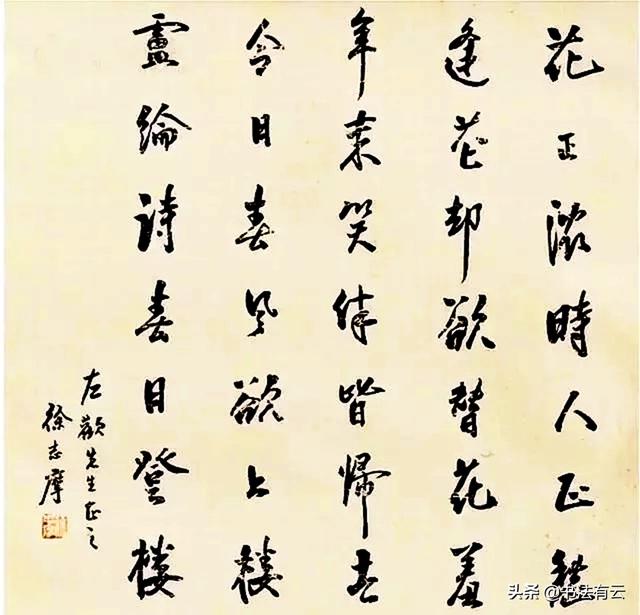 花正濃時人正愁
逢花却欲替花羞
年來笑伴皆歸去
今日春風欲上樓
盧綸詩春日登樓
左先生正之
徐志摩
头条 @书法有云